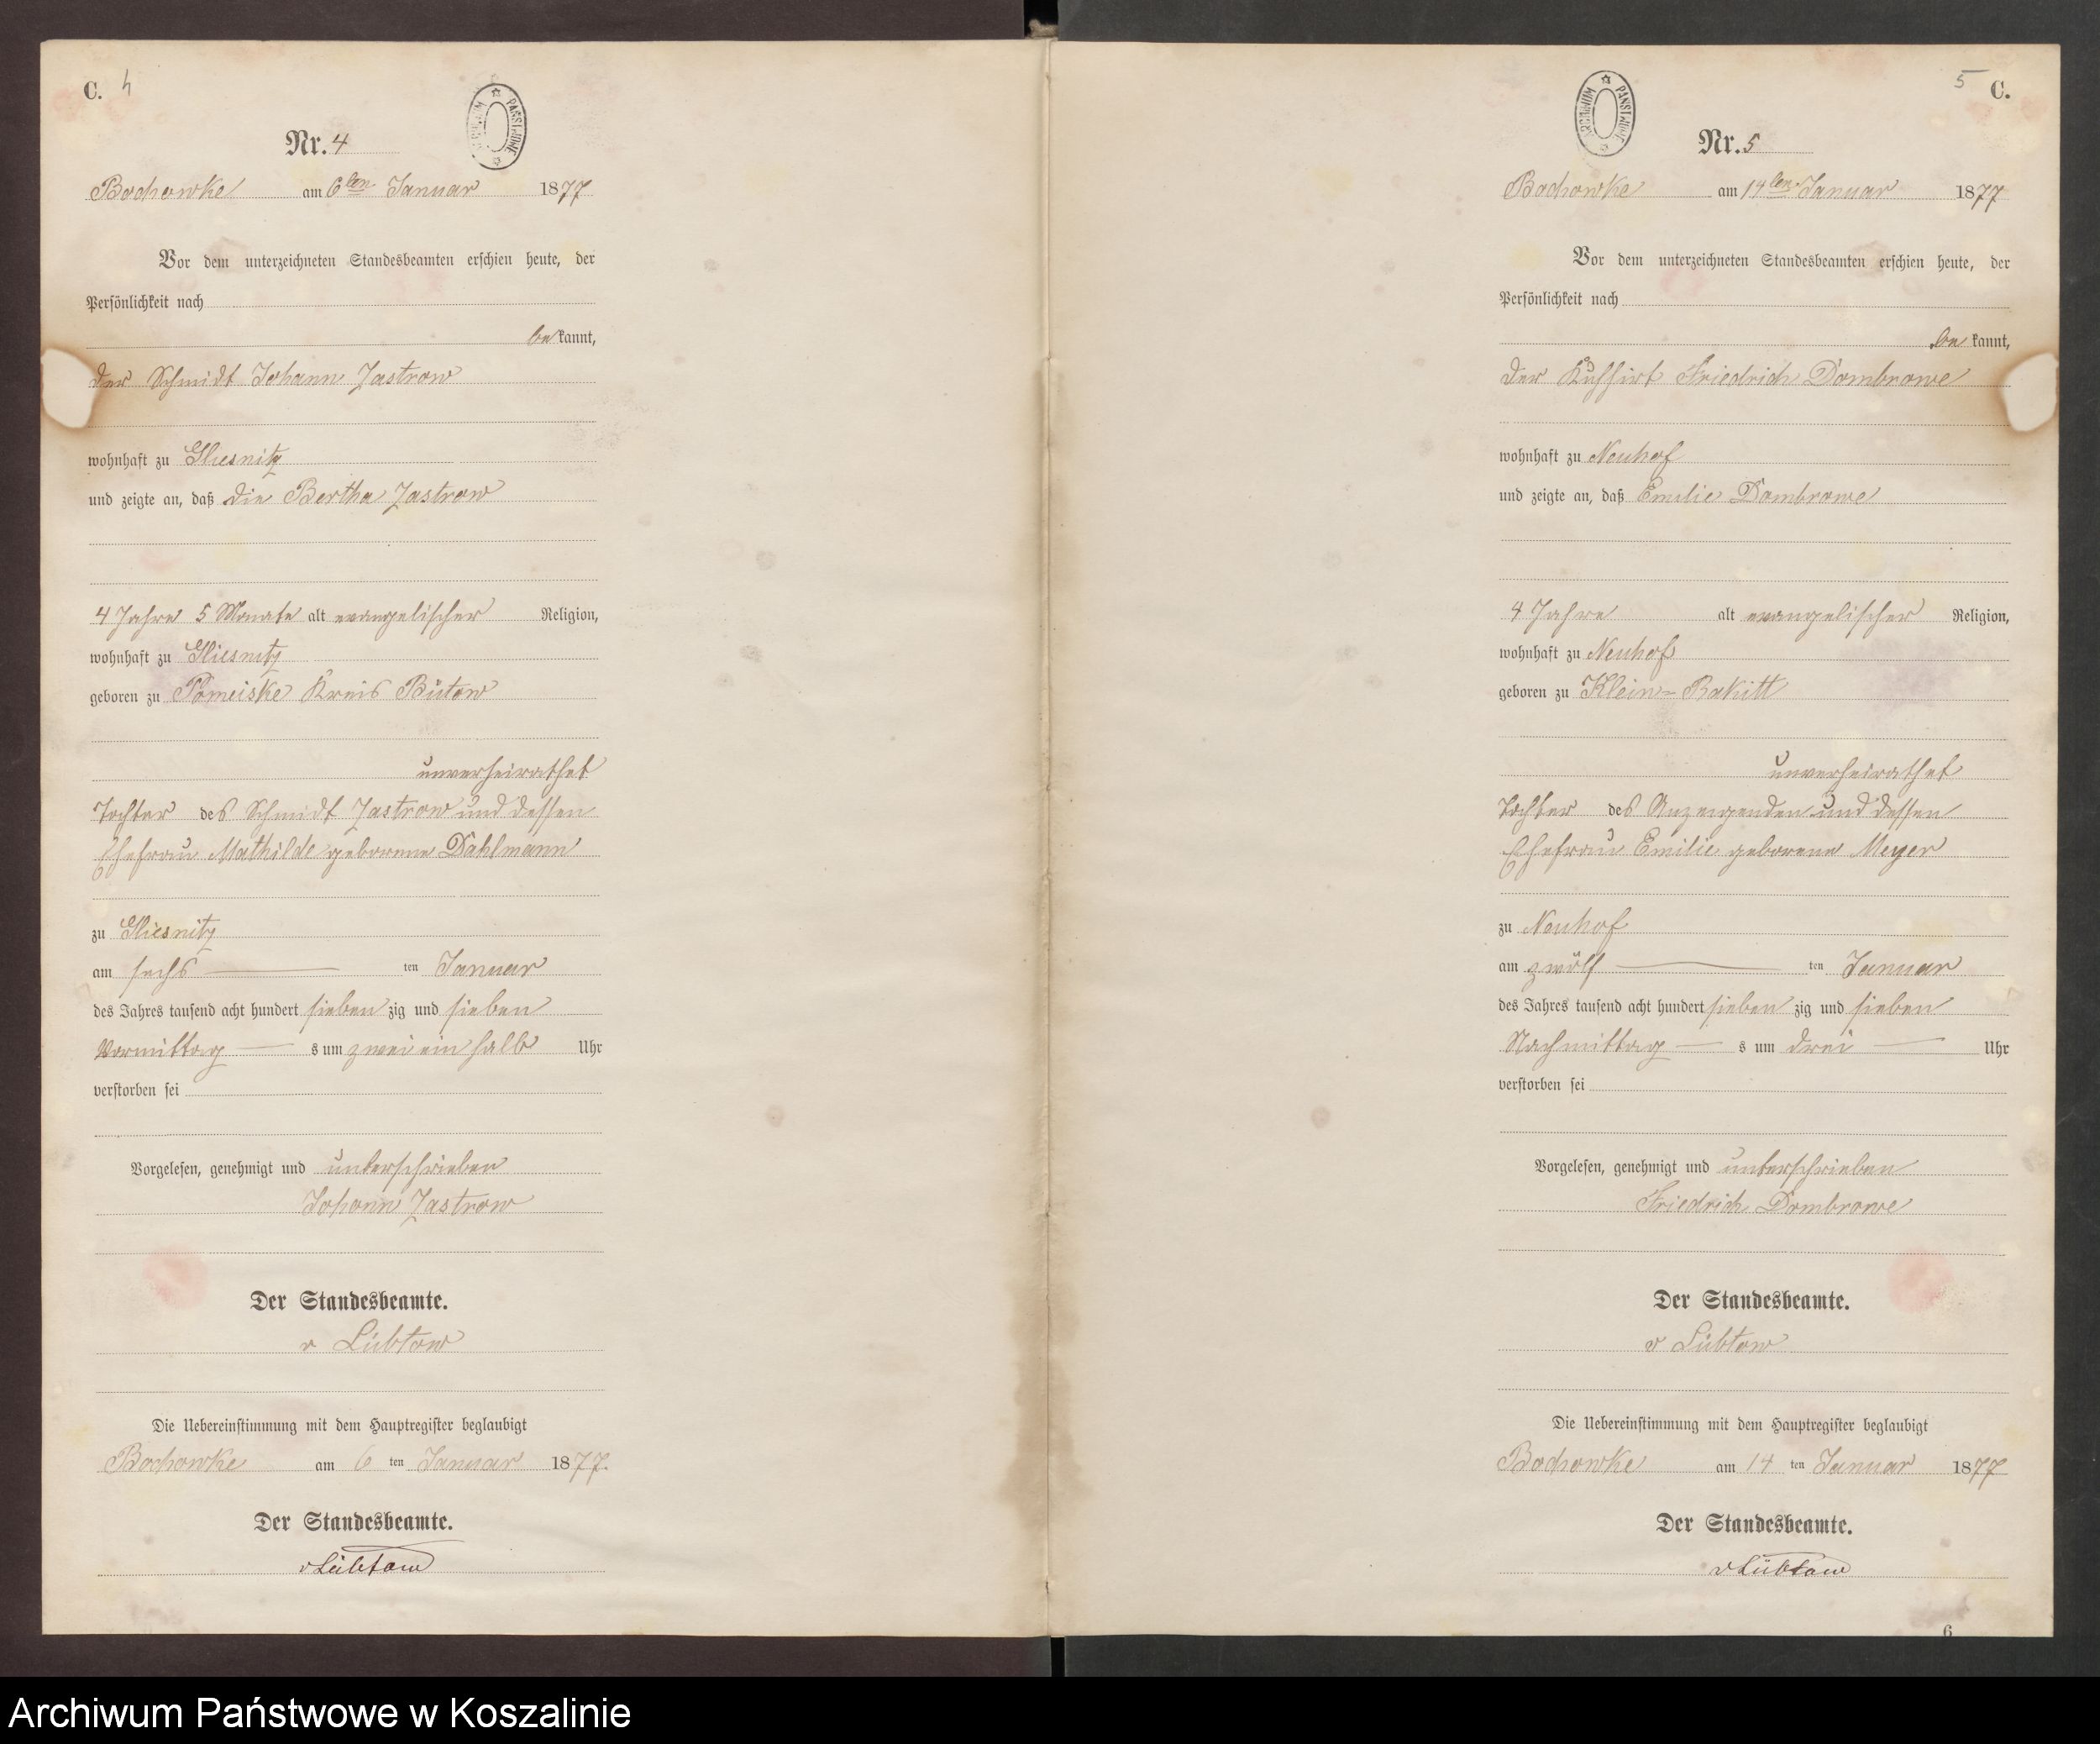 C. 4
ARCHIWUM PAŃSTWOWE
Nr. 4
Bochowke am 6ten Januar 1877
Vor dem unterzeichneten Standesbeamten erschien heute, der
Persönlichkeit nach
bekannt,
der Schmidt Johann Zastrow
wohnhaft zu Gliesnitz
und zeigte an, daß die Bertha Zastrow
4 Jahre 5 Monate alt evangelischer Religion,
wohnhaft zu Gliesnitz
geboren zu Pomeiske Kreis Bütow
unverheirathet
Tochter des Schmidt Zastrow und dessen
Ehefrau Mathilde geborene Dahlmann
zu Gliesnitz
am sechs ten Januar
des Jahres tausend acht hundert sieben zig und sieben
Vormittag s um zwei ein halb Uhr
verstorben sei
Vorgelesen, genehmigt und unterschrieben
Johann Zastrow
Der Standesbeamte.
v Lübtow
Die Uebereinstimmung mit dem Hauptregister beglaubigt
Bochowke am 6 ten Januar 1877.
Der Standesbeamte.
v Lübtow
5 C.
ARCHIWUM PAŃSTWOWE
Nr. 5
Bochowke am 14ten Januar 1877
Vor dem unterzeichneten Standesbeamten erschien heute, der
Persönlichkeit nach
bekannt,
der Kuhhirt Friedrich Dombrowe
wohnhaft zu Neuhof
und zeigte an, daß Emilie Dombrowe
4 Jahre alt evangelischer Religion,
wohnhaft zu Neuhof
geboren zu Klein-Rakitt
unverheirathet
Tochter des Anzeigenden und dessen
Ehefrau Emilie geborene Meyer
zu Neuhof
am zwölf ten Januar
des Jahres tausend acht hundert sieben zig und sieben
Nachmittag s um drei Uhr
verstorben sei
Vorgelesen, genehmigt und unterschrieben
Friedrich Dombrowe
Der Standesbeamte.
v Lübtow
Die Uebereinstimmung mit dem Hauptregister beglaubigt
Bochowke am 14 ten Januar 1877
Der Standesbeamte.
v Lübtow
6
Archiwum Państwowe w Koszalinie